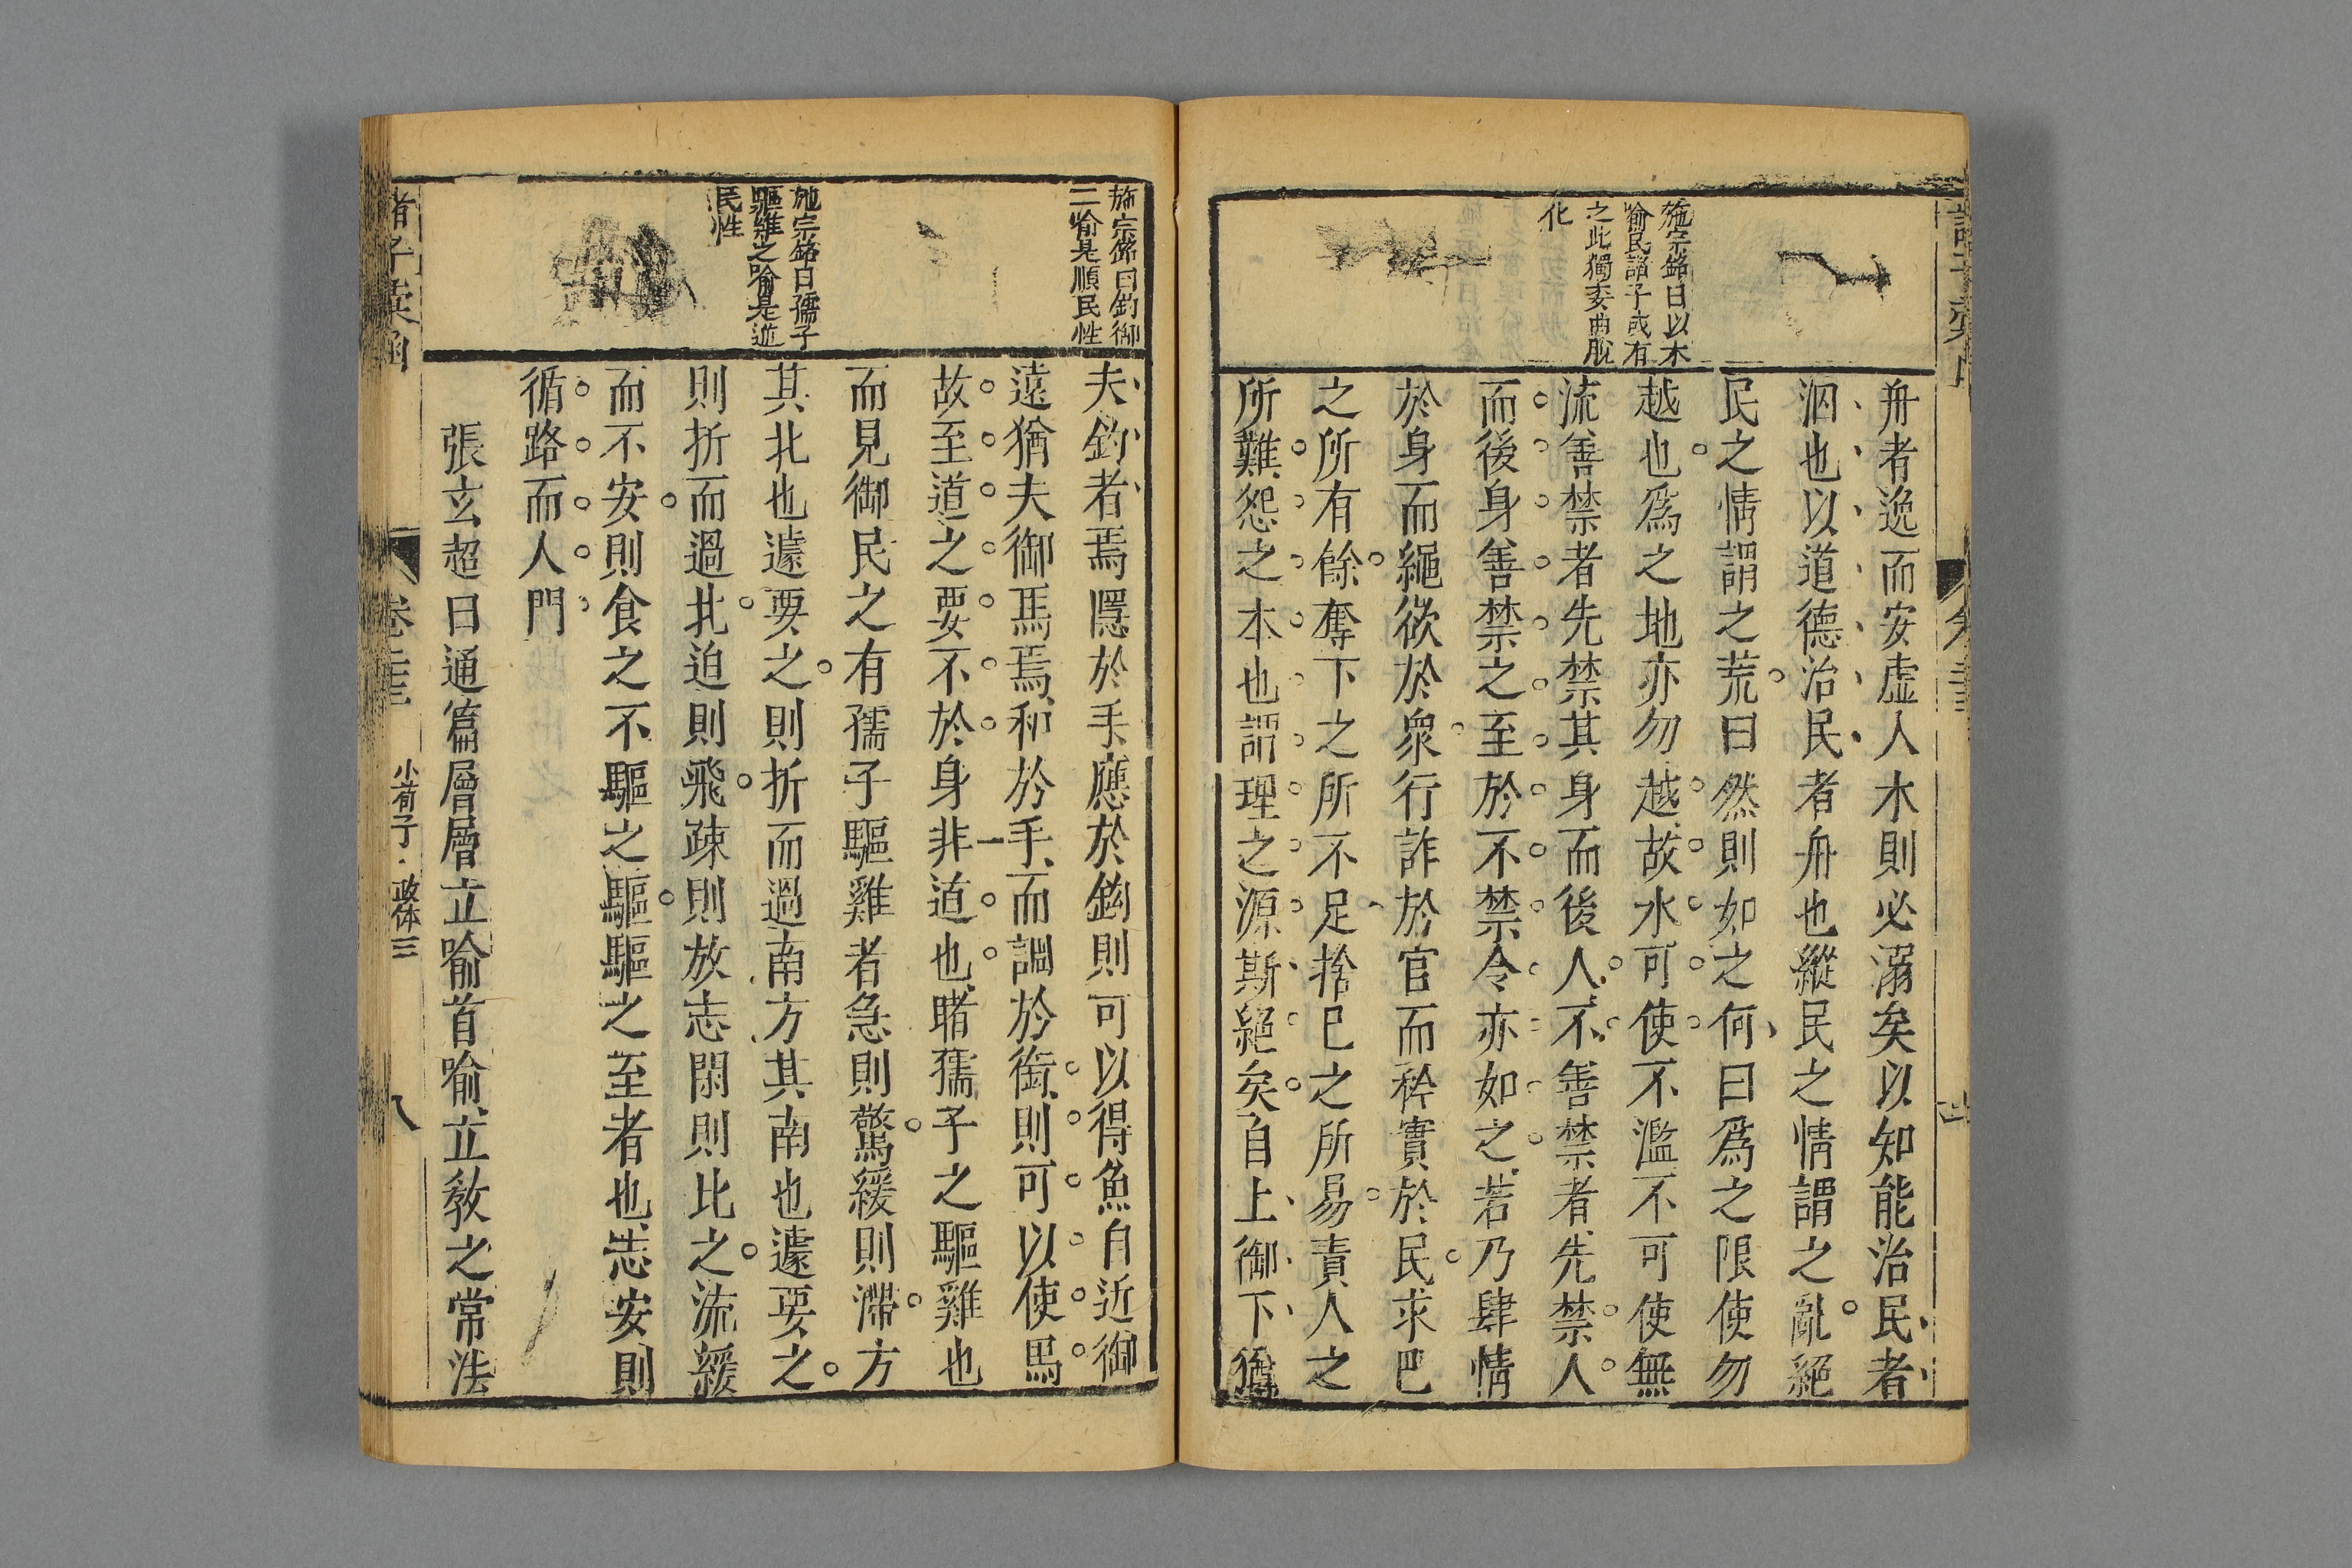 施宗銘曰以木
喻民諸子或有
之此獨委曲脫
化
舟者逸而安虛人水則必溺矣以知能治民者
泅也以道德治民者舟也縱民之情謂之亂絕
民之情謂之荒曰然則如之何曰爲之限使勿
越也爲之地亦勿越故水可使不濫不可使無
流善禁者先禁其身而後人不善禁者先禁人
而後身善禁之至於不禁令亦如之若乃肆情
於身而繩欲於衆行詐於官而矜實於民求巳
之所有餘奪下之所不足捨巳之所易責人之
所難怨之本也謂理之源斯絕矣自上御下猶
施宗銘曰釣御
二喻是順民性
施宗銘曰孺子
驅雞之喻是遊
民性
夫釣者焉隱於手應於鈎則可以得魚自近御
遠猶夫御馬焉和於手而調於銜則可以使馬
故至道之要不於身非道也睹孺子之驅雞也
而見御民之有孺子驅雞者急則驚緩則滯方
其北也遽要之則折而過南方其南也遽要之
則折而過北迫則飛疎則放志閑則比之流緩
而不安則食之不驅之驅驅之至者也志安則
循路而人門
張玄超曰通篇層層立喻首喻立教之常法
諸子彙函
卷三
小荀子 政体三
八